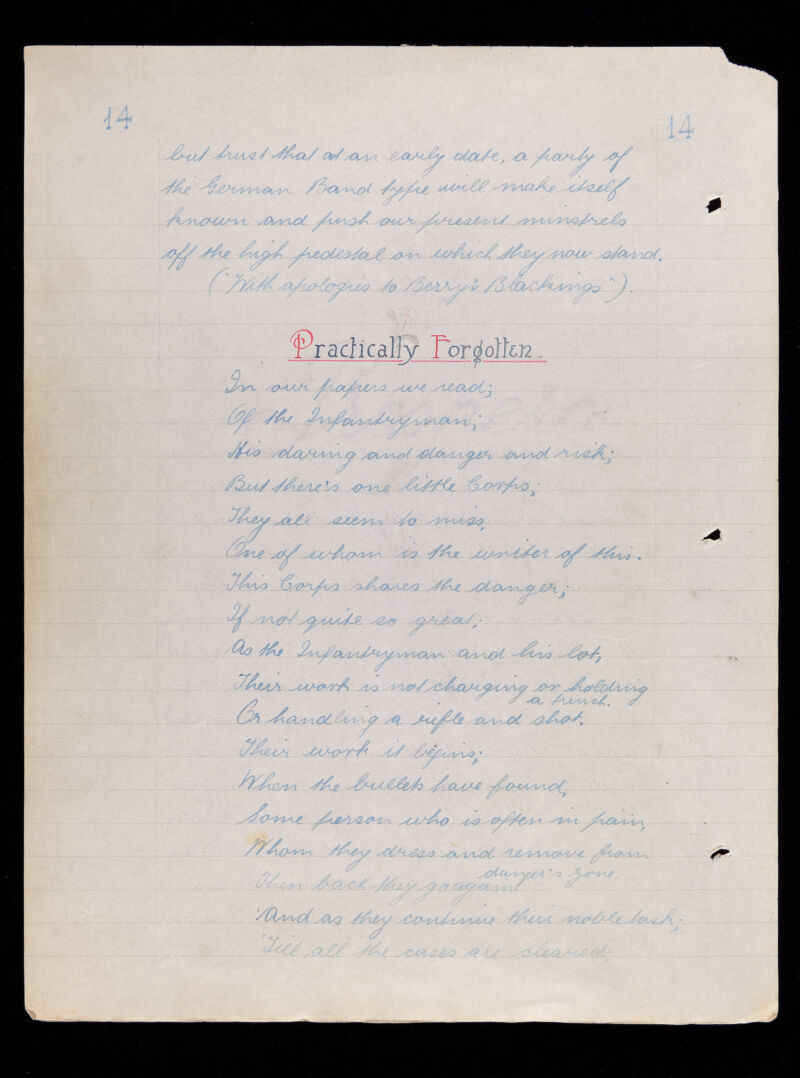 14
14
but trust that at an early date, a party of
the German Band type will make itself
known and push our present minstrels
off the high pedestal on which they now stand.
("With apologies to Berry's Blackings").
Practically Forgotten.
In our papers we read;
Of the Infantryman;
His daring and danger and risk;
But there's one little Corps;
They all seem to miss,
One of whom is the writer of this.
This Corps shares the danger;
If not quite so great;
As the Infantryman and his lot,
Their work is not charging or holding
a trench.
Or handling a rifle and shot.
Their work it begins;
When the bullets have found,
Some person who is often in pain,
Whom they dress and remove from
danger's zone.
Then back they go again.
And as they continue their noble task;
'Till all the cases are cleared;